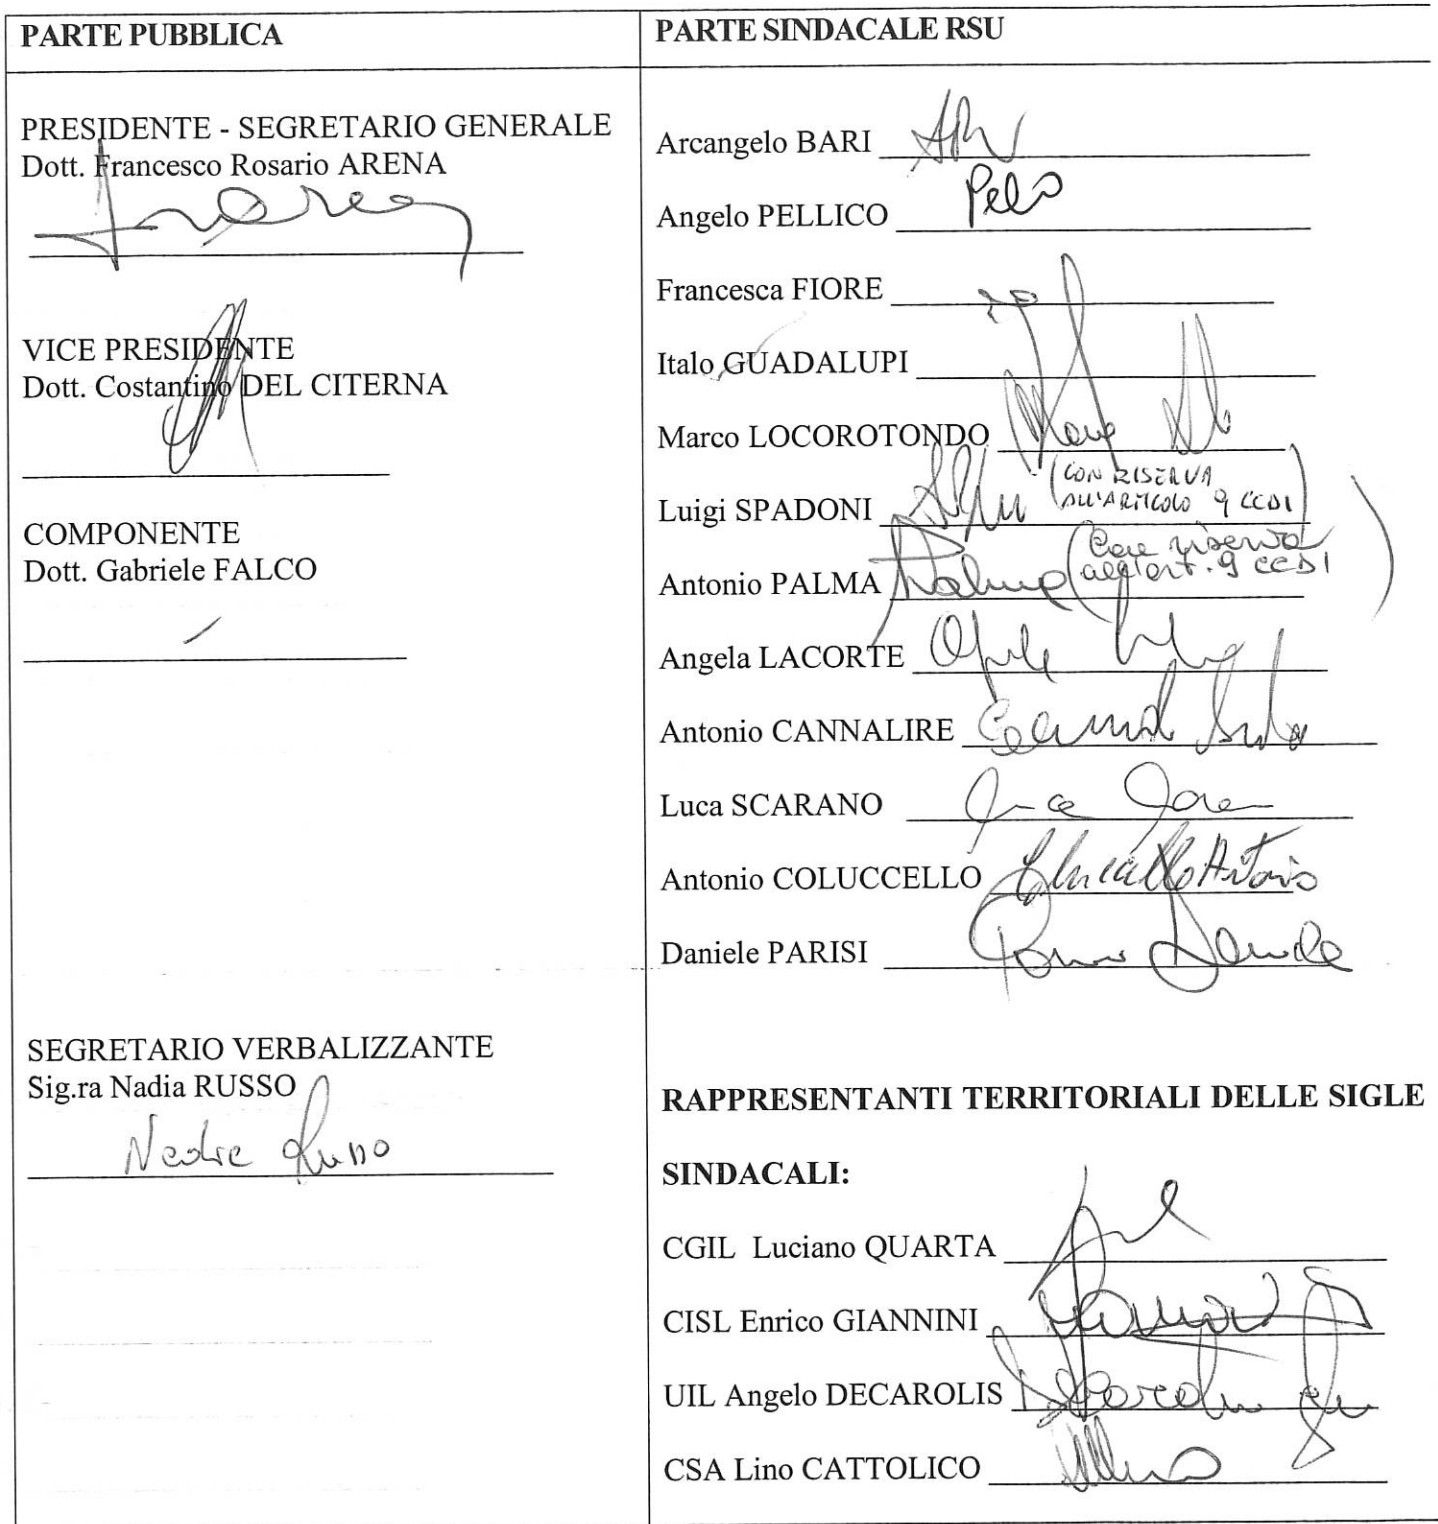 PARTE PUBBLICA
PRESIDENTE - SEGRETARIO GENERALE
Dott. Francesco Rosario ARENA
VICE PRESIDENTE
Dott. Costantino DEL CITERNA
COMPONENTE
Dott. Gabriele FALCO
SEGRETARIO VERBALIZZANTE
Sig.ra Nadia RUSSO
Nadia Russo
PARTE SINDACALE RSU
Arcangelo BARI
Angelo PELLICO
Francesca FIORE
Italo GUADALUPI
Marco LOCOROTONDO
Luigi SPADONI (CON RISERVA
ALL'ARTICOLO 9 CCDI)
Antonio PALMA Palma (Con riserva
all'art. 9 CCDI)
Angela LACORTE
Antonio CANNALIRE
Luca SCARANO
Antonio COLUCCELLO Coluccello Antonio
Daniele PARISI
RAPPRESENTANTI TERRITORIALI DELLE SIGLE
SINDACALI:
CGIL Luciano QUARTA
CISL Enrico GIANNINI
UIL Angelo DECAROLIS
CSA Lino CATTOLICO